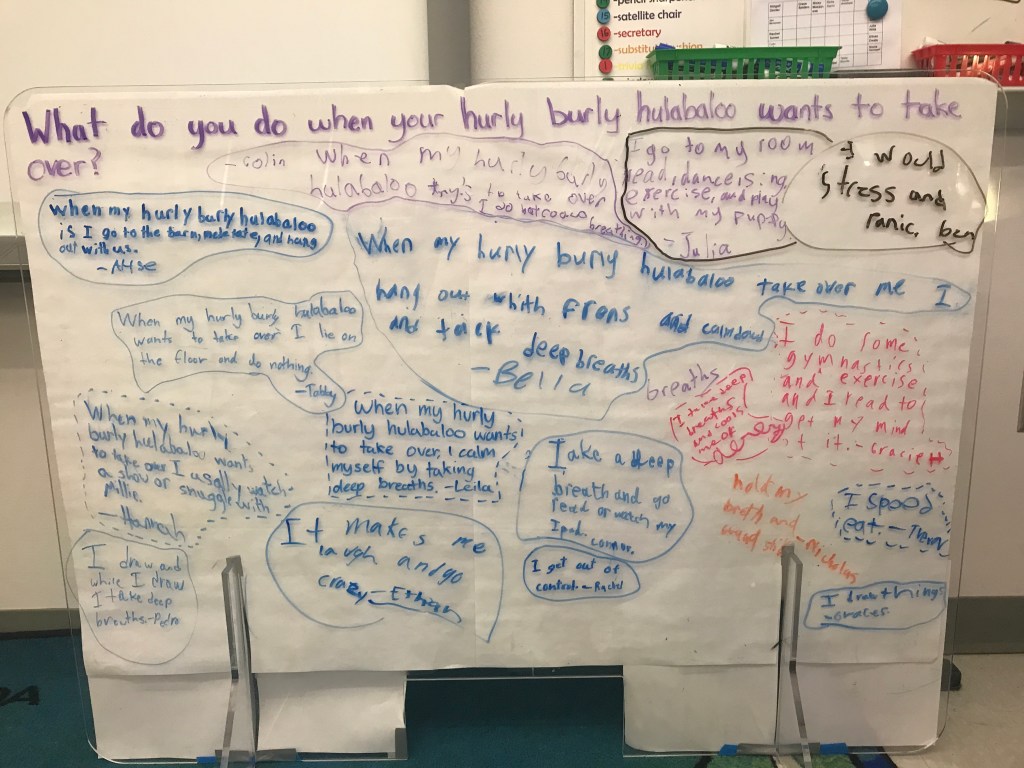 -satellite chair
-secretary
What do you do when your hurly burly hulabaloo wants to take
over?
-Colin When my hurly burly
hulabaloo try's to take over
I do hot cocoa
breathing
I go to my room
read, dance, sing
exercise, and play
with my puppy
- Julia
I would
stress and
panic, ben
when my hurly burly hulabaloo
is I go to the barn, and hang
out with us.
When my hurly burly hulabaloo take over me I
hang out whith frans and calmdown
and tack deep breaths
-Bella
When my hurly burly hulabaloo
wants to take over I lie on
the floor and do nothing.
I do some
gymnastics
and exercise
and I read to
get my mind
of it. - Gracie H
breaths
I take deep
breaths
and cool
When my hurly
burly hulabaloo wants
to take over I usally watch
a show or snuggle with
Millie.
- Hannah
When my hurly
burly hulabaloo wants
to take over, I calm
myself by taking
deep breaths. -Leila
Take a deep
breath and go
read or watch my
Ipad. connor.
hold my
breth and
- Nicholas
I
eat -
I draw and
while I draw
I take deep
breaths. - Pedro
It makes me
laugh and go
crazy - Ethan
I get out of
control. - Rachel
I draw things